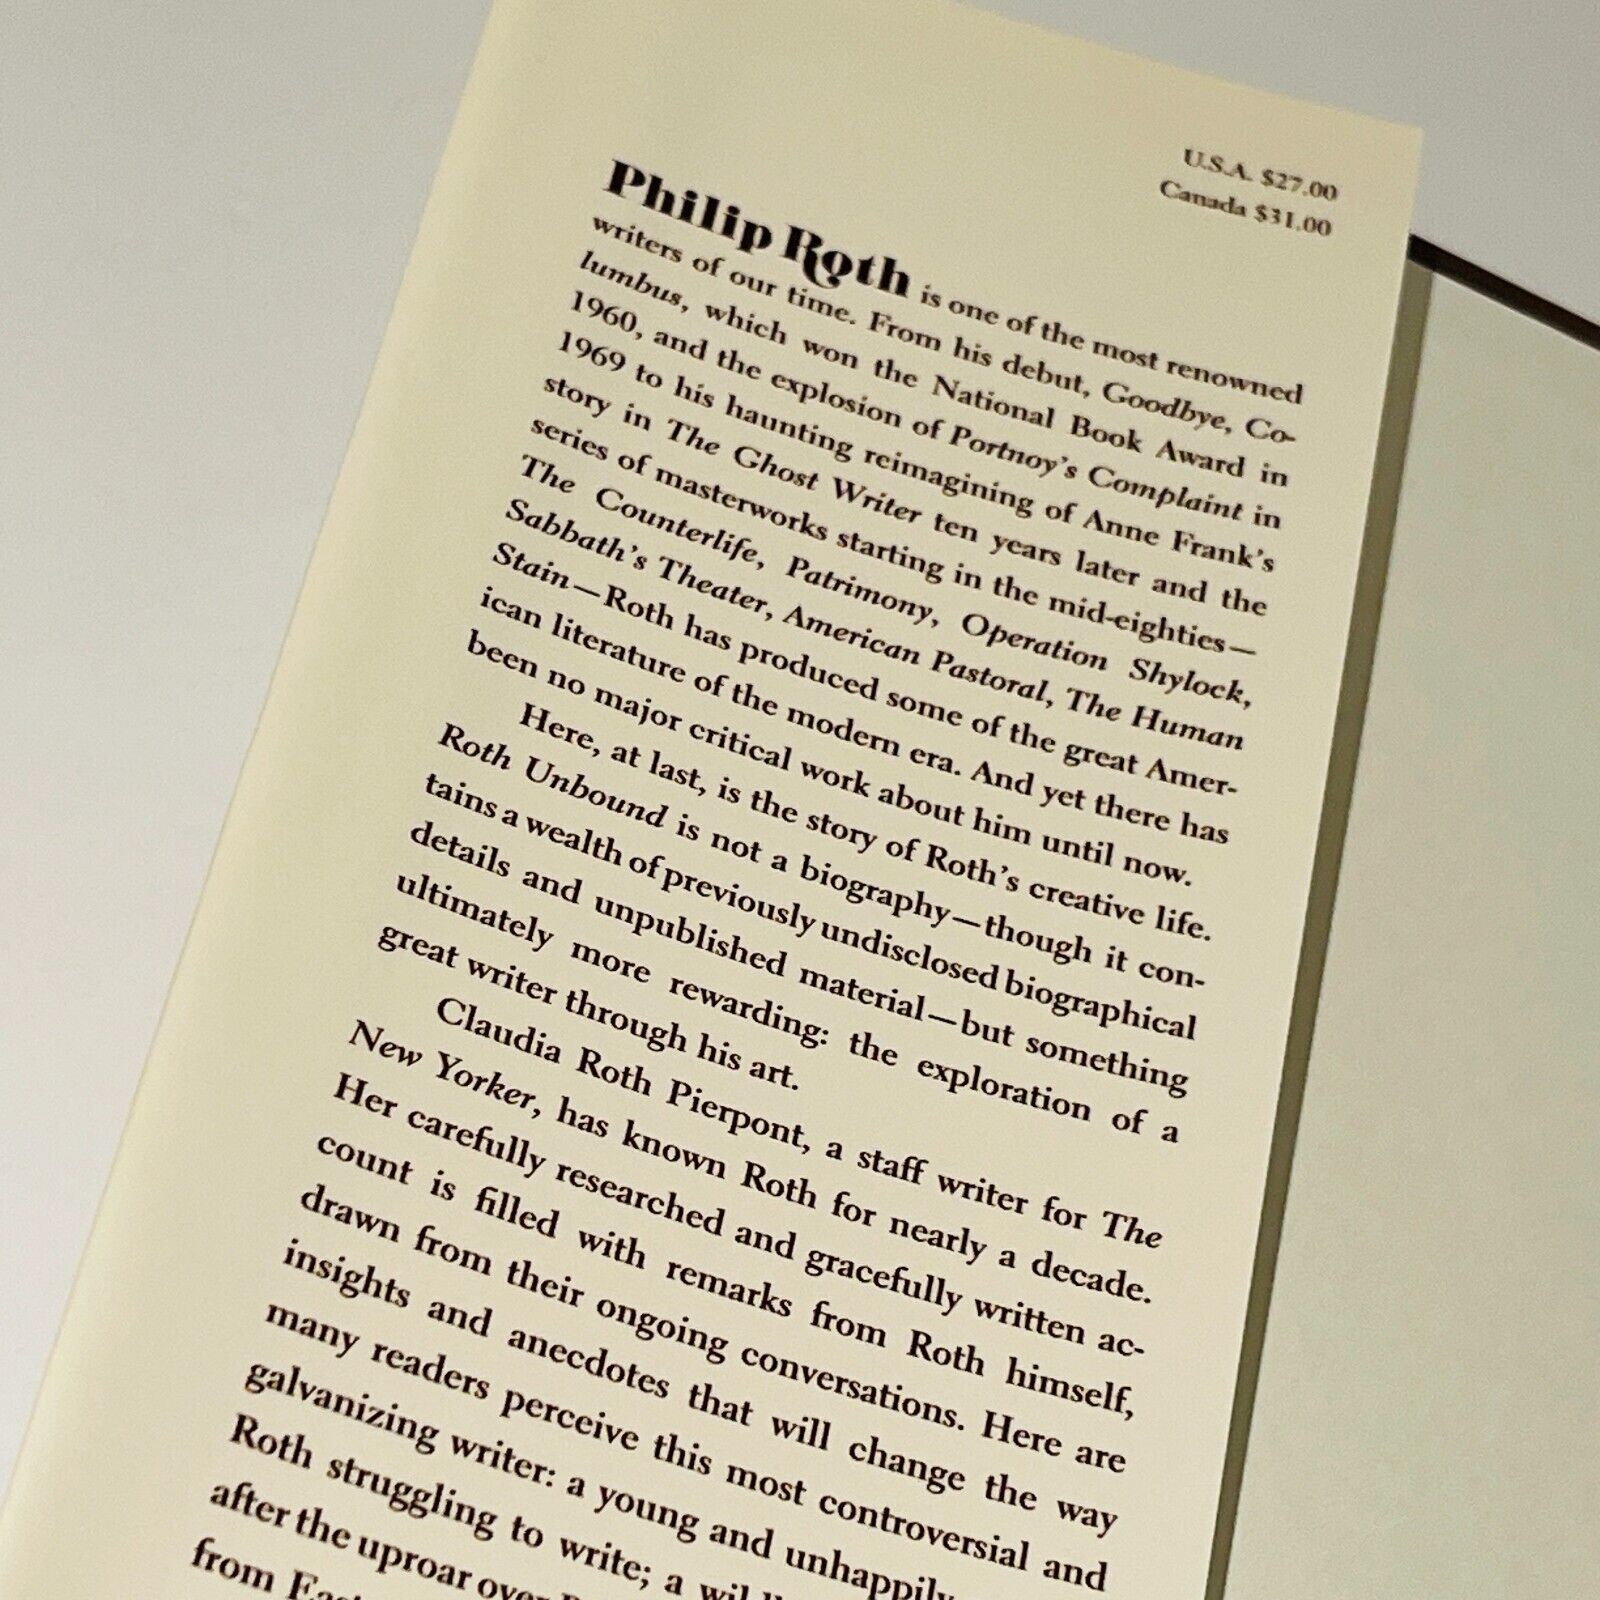 U.S.A. $27.00
Canada $31.00
Philip Roth is one of the most renowned
writers of our time. From his debut, Goodbye, Co-
lumbus, which won the National Book Award in
1960, and the explosion of Portnoy's Complaint in
1969 to his haunting reimagining of Anne Frank's
story in The Ghost Writer ten years later and the
series of masterworks starting in the mid-eighties—
The Counterlife, Patrimony, Operation Shylock,
Sabbath's Theater, American Pastoral, The Human
Stain—Roth has produced some of the great Amer-
ican literature of the modern era. And yet there has
been no major critical work about him until now.
Here, at last, is the story of Roth's creative life.
Roth Unbound is not a biography—though it con-
tains a wealth of previously undisclosed biographical
details and unpublished material—but something
ultimately more rewarding: the exploration of a
great writer through his art.
Claudia Roth Pierpont, a staff writer for The
New Yorker, has known Roth for nearly a decade.
Her carefully researched and gracefully written ac-
count is filled with remarks from Roth himself,
drawn from their ongoing conversations. Here are
insights and anecdotes that will change the way
many readers perceive this most controversial and
galvanizing writer: a young and unhappily
Roth struggling to write; a
after the uproar over
from